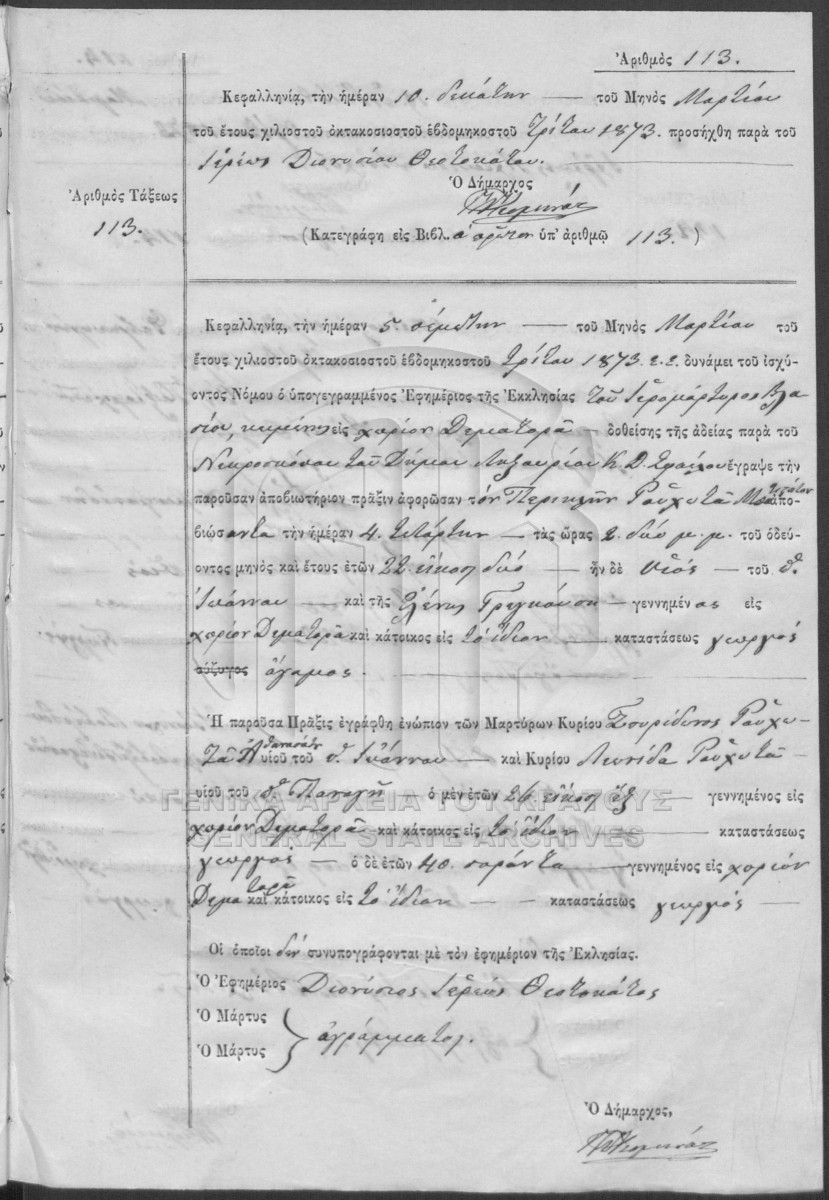 Ἀριθμὸς 113.
Κεφαλληνίᾳ, τὴν ἡμέραν 10. δεκάτην — τοῦ Μηνὸς Μαρτίου
τοῦ ἔτους χιλιοστοῦ ὀκτακοσιοστοῦ ἑβδομηκοστοῦ τρίτου 1873. προσήχθη παρὰ τοῦ
Ἱερέως Διονυσίου Θεοτοκάτου.
Ὁ Δήμαρχος
(Κατεγράφη εἰς Βιβλ. α πρῶτον ὑπ' ἀριθμῷ 113.)
Ἀριθμὸς Τάξεως
113.
Κεφαλληνίᾳ, τὴν ἡμέραν 5 πέμπτην — τοῦ Μηνὸς Μαρτίου τοῦ
ἔτους χιλιοστοῦ ὀκτακοσιοστοῦ ἑβδομηκοστοῦ τρίτου 1873. ε.ε. δυνάμει τοῦ ἰσχύ-
οντος Νόμου ὁ ὑπογεγραμμένος Ἐφημέριος τῆς Ἐκκλησίας τοῦ Ἱερομάρτυρος Βλα
σίου, κειμένης εἰς χωρίον Δεματορᾶ — δοθείσης τῆς ἀδείας παρὰ τοῦ
Νεκροσκόπου τοῦ Δήμου Ληξουρίου Κ. Δ. ἔγραψε τὴν
παροῦσαν ἀποβιωτήριον πρᾶξιν ἀφορῶσαν τὸν Περικλῆν Ραυχυτᾶ ἀπο-
βιώσαντα τὴν ἡμέραν 4. τετάρτην — τὰς ὥρας 2. δύο μ.μ. τοῦ ὁδεύ-
οντος μηνὸς καὶ ἔτους ἐτῶν 22 εἴκοσι δύο — ἦν δὲ υἱὸς — τοῦ π
Ἰωάννου — καὶ τῆς Ἑλένης — γεννημένος εἰς
χωρίον Δεματορᾶ καὶ κάτοικος εἰς τὸ ἴδιον — καταστάσεως γεωργός
σύζυγος ἄγαμος. —
Ἡ παροῦσα Πρᾶξις ἐγράφθη ἐνώπιον τῶν Μαρτύρων Κυρίου Σπυρίδωνος Ραυχυ
τᾶ υἱοῦ τοῦ π Ἰωάννου — καὶ Κυρίου Λεωνίδα Ραυχυτᾶ —
υἱοῦ τοῦ π Παναγῆ ὁ μὲν ἐτῶν 26 εἴκοσι ἕξ — γεννημένος εἰς
χωρίον Δεματορᾶ καὶ κάτοικος εἰς τὸ ἴδιον — καταστάσεως
γεωργὸς — ὁ δὲ ἐτῶν 40. σαράντα — γεννημένος εἰς χωρίον
Δεματορᾶ καὶ κάτοικος εἰς τὸ ἴδιον — καταστάσεως γεωργός —
Οἱ ὁποῖοι δὲν συνυπογράφονται μὲ τὸν ἐφημέριον τῆς Ἐκλησίας.
Ὁ Ἐφημέριος Διονύσιος Ἱερεὺς Θεοτοκάτος
Ὁ Μάρτυς
Ὁ Μάρτυς } ἀγράμματοι.
Ὁ Δήμαρχος,
ΓΕΝΙΚΑ ΑΡΧΕΙΑ ΤΟΥ ΚΡΑΤΟΥΣ
GENERAL STATE ARCHIVES